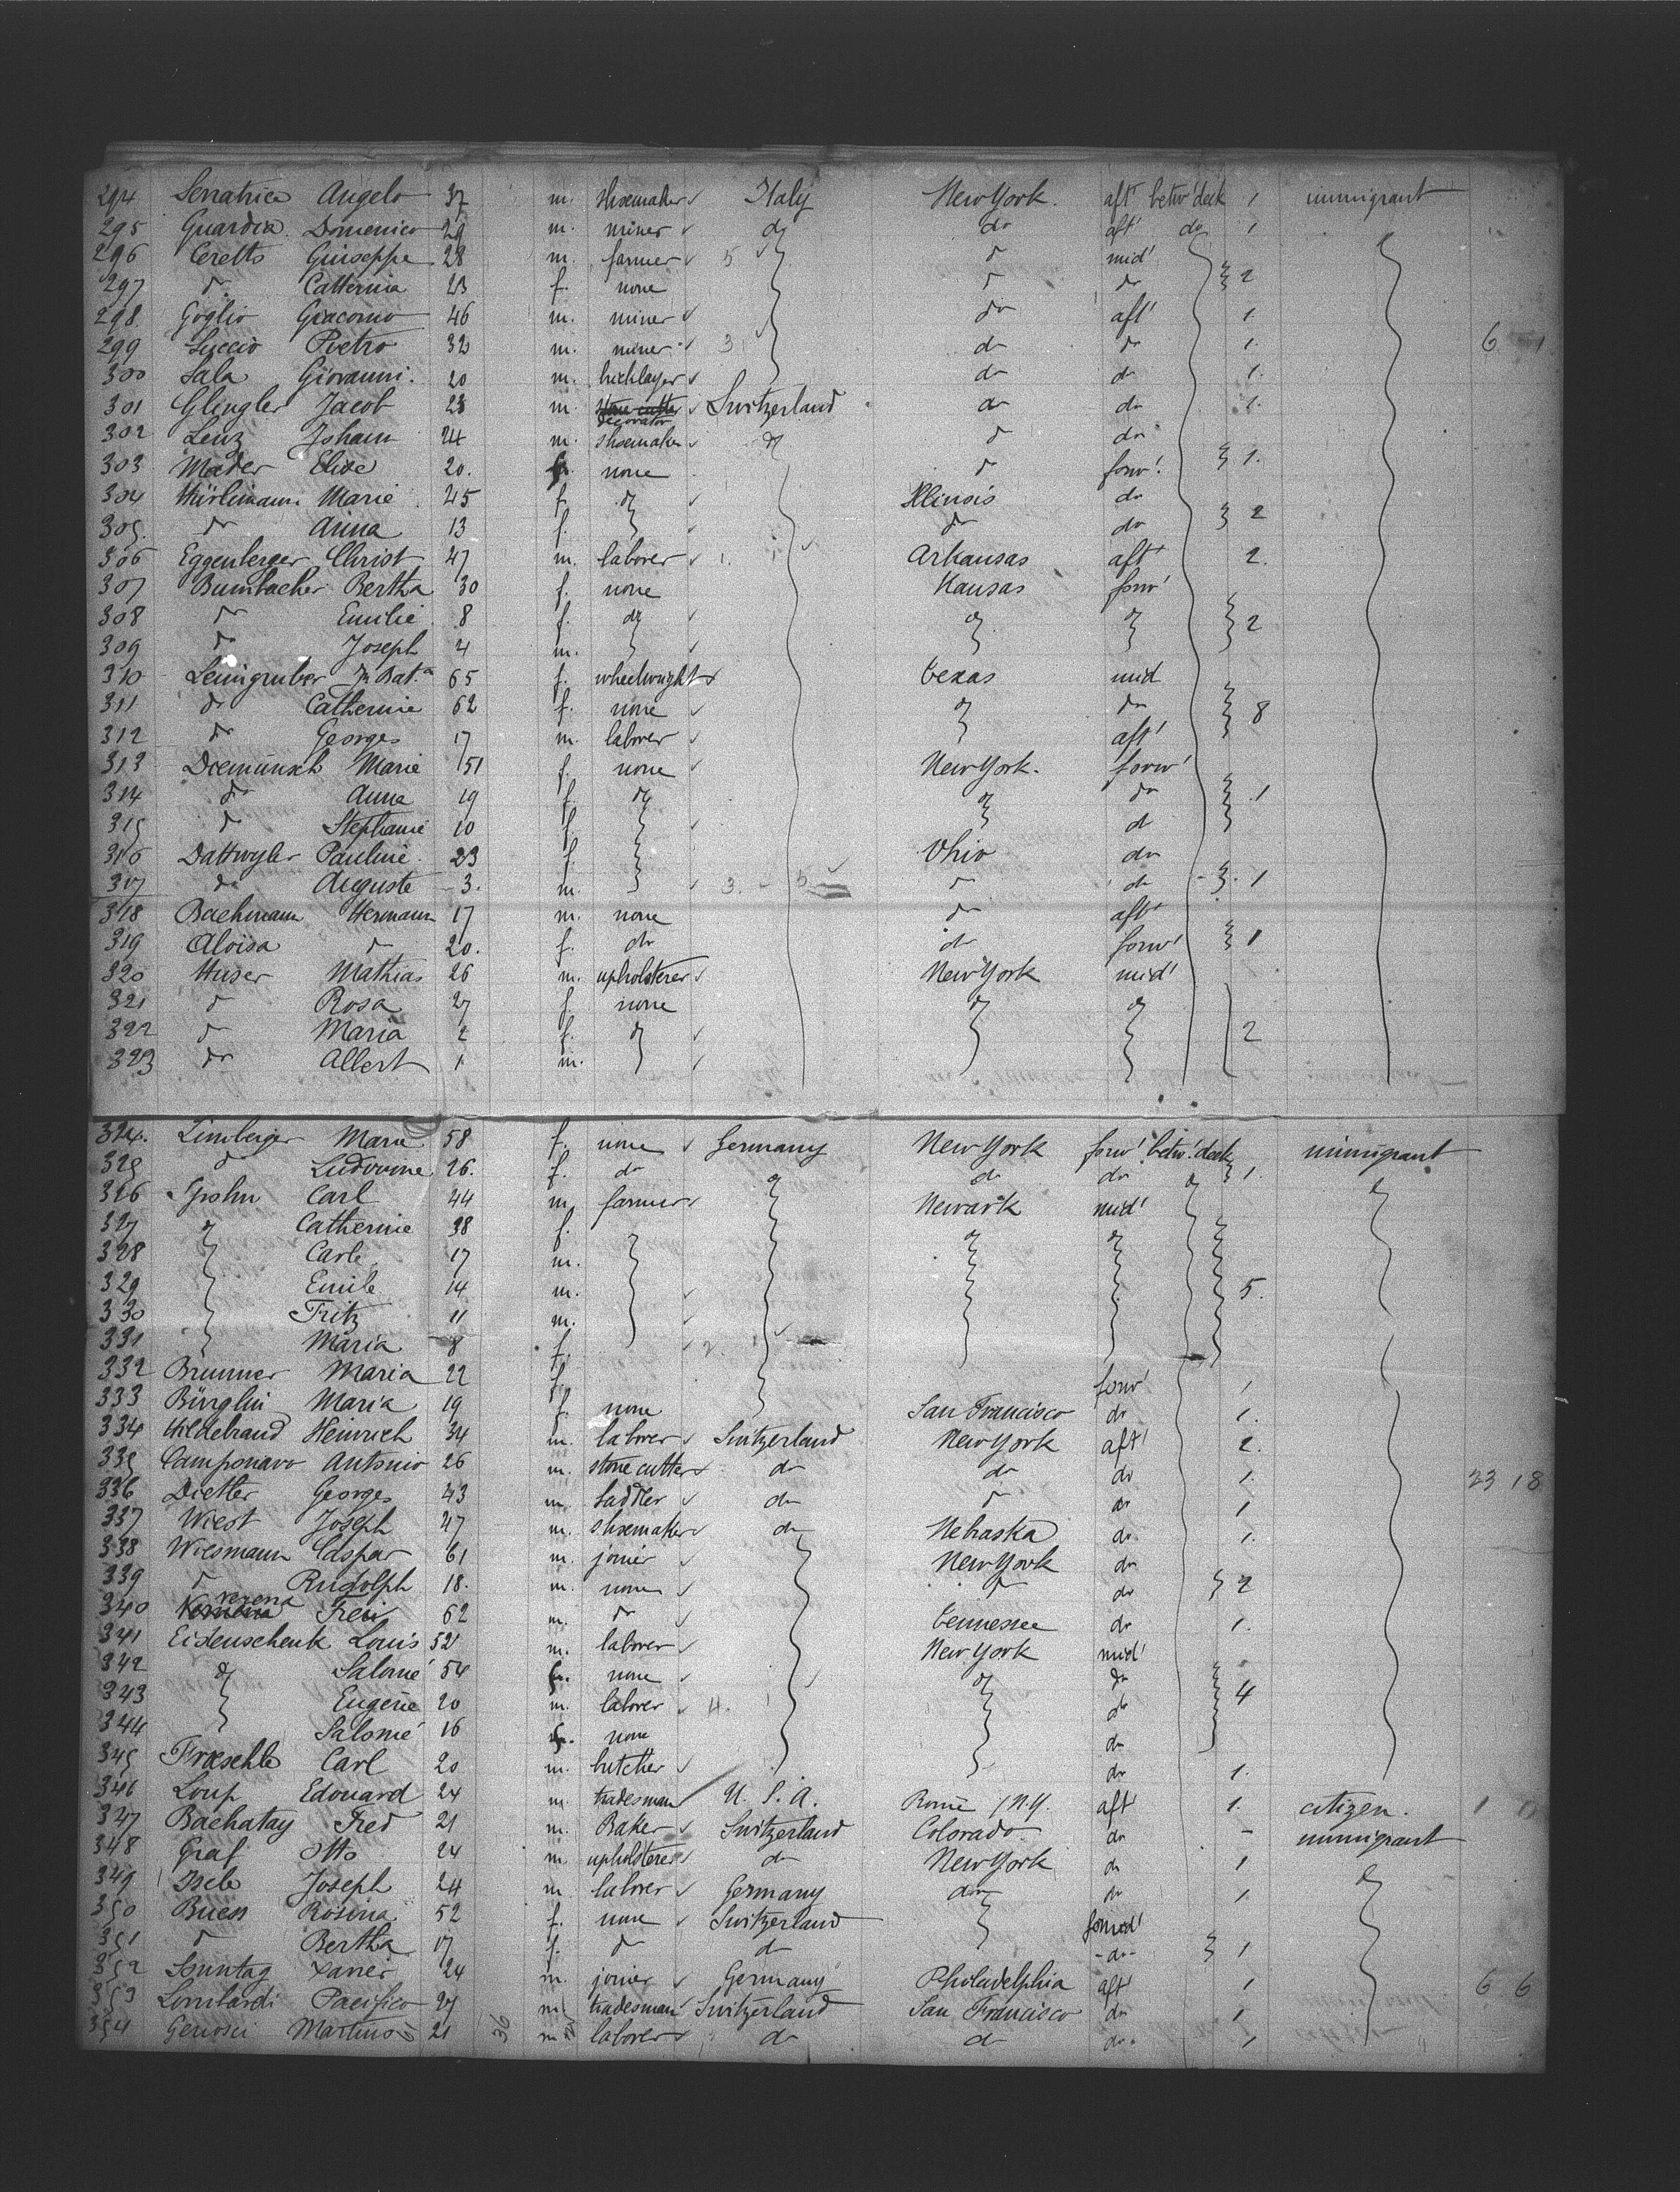 294 Serratrice Angelo 37 m. shoemaker Italy New York. aft betw' deck 1 immigrant
295 Guardia Domenico 29 m. miner do do aft' do 1
296 Ceretto Giuseppe 28 m. farmer 5 do mid'
297 do Catterina 23 f. none do do 2
298 Goglio Giacomo 46 m. miner do aft' 1.
299 Succio Pietro 32 m. miner 3 do do 1. 6 1
300 Sala Giovanni. 20 m. bricklayer do do 1.
301 Glingler Jacob 23 m. stone cutter decorator Switzerland do do 1.
302 Lenz Johann 24 m. shoemaker do do do
303 Mader Elise 20. f. none do forw'. 1.
304 Hürlimann Marie 45 f. do Illinois do
305. do Anna 13 f. do do 2
306 Eggenberger Christ 47 m. laborer 1. Arkansas aft 2.
307 Bumbacher Bertha 30 f. none Kansas forw'
308 do Emilie 8 f. do do do 2
309 do Joseph 4 m.
310 Leimgruber J. Bat.a 65 f. wheelwright texas mid
311 do Catherine 62 f. none do do 8
312 do Georges 17 m. laborer aft'
313 Diemunsch Marie 51 f. none New York. forw'
314 do Anna 19 f. do do do 1
315 do Stephanie 10 f. do
316 Dattwyler Pauline. 23 f. Ohio do
317 do Auguste 3. m. 3. do do 1
318 Bachmann Hermann 17 m. none do aft'
319 Aloisa do 20. f. do do forw' 1
320 Huser Mathias 26 m. upholsterer New York mid'
321 do Rosa 27 f. none do do
322 do Maria 2 f. do 2
323 do Albert 1 m.
324. Limberger Marie 58 f. none Germany New York forw' betw'. deck immigrant
325 do 26. f. do do do 1.
326 Spohn Carl 44 m. farmer do Newark mid' do do
327 do Catherine 38 f. do do
328 Carl 17 m.
329 Emile 14 m. 5.
330 Fritz 11 m.
331 Maria 8 f. 2.
332 Brunner Maria 22 f. forw' 1
333 Bürglin Maria 19 f. none San Francisco do 1.
334 Hildebrand Heinrich 34 m. laborer Switzerland New York aft' 2.
335 Camponavo Antonio 26 m. stone cutter do do do 1. 23 18
336 Dietler Georges 43 m. Saddler do do do 1
337 Wiest Joseph 47 m. shoemaker do Nebraska do 1.
338 Wiesmann Caspar 61 m. joiner New York do
339 do Rudolph 18. m. none do do 2
340 Verena Frei 62 m. do tennessee do 1.
341 Eisenschenk Louis 52 m. laborer New York mid'
342 do Salomé 54 f. none do do
343 Eugene 20 m. laborer 4. do 4
344 Salomé 16 f. none do
345 Froeschle Carl 20 m. butcher do 1.
346 Loup Edouard 24 m. tradesman U. S. A. Rome / N.Y. aft' 1. citizen. 1 0
347 Bachatay Fred 21 m. Baker Switzerland Colorado do - immigrant
348 Graf Otto 24 m. upholsterer do New York do 1
349 Isele Joseph 24 m. laborer Germany do do 1.
350 Buess Rosina 52 f. none Switzerland forwd'
351 do Bertha 17 f. do do -do- 1
352 Sonntag Xavier 24 m. joiner Germany Philadelphia aft 1 6 6
353 Lombardi Pacifico 27 m tradesman Switzerland San Francisco do 1
354 Martino 21 36 m laborer do do do. 1